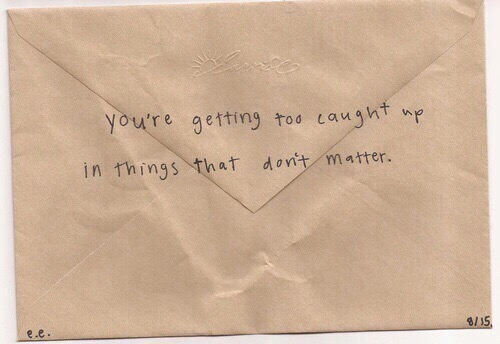 You're getting too caught up
in things that don't matter.
e.e.
8/15.